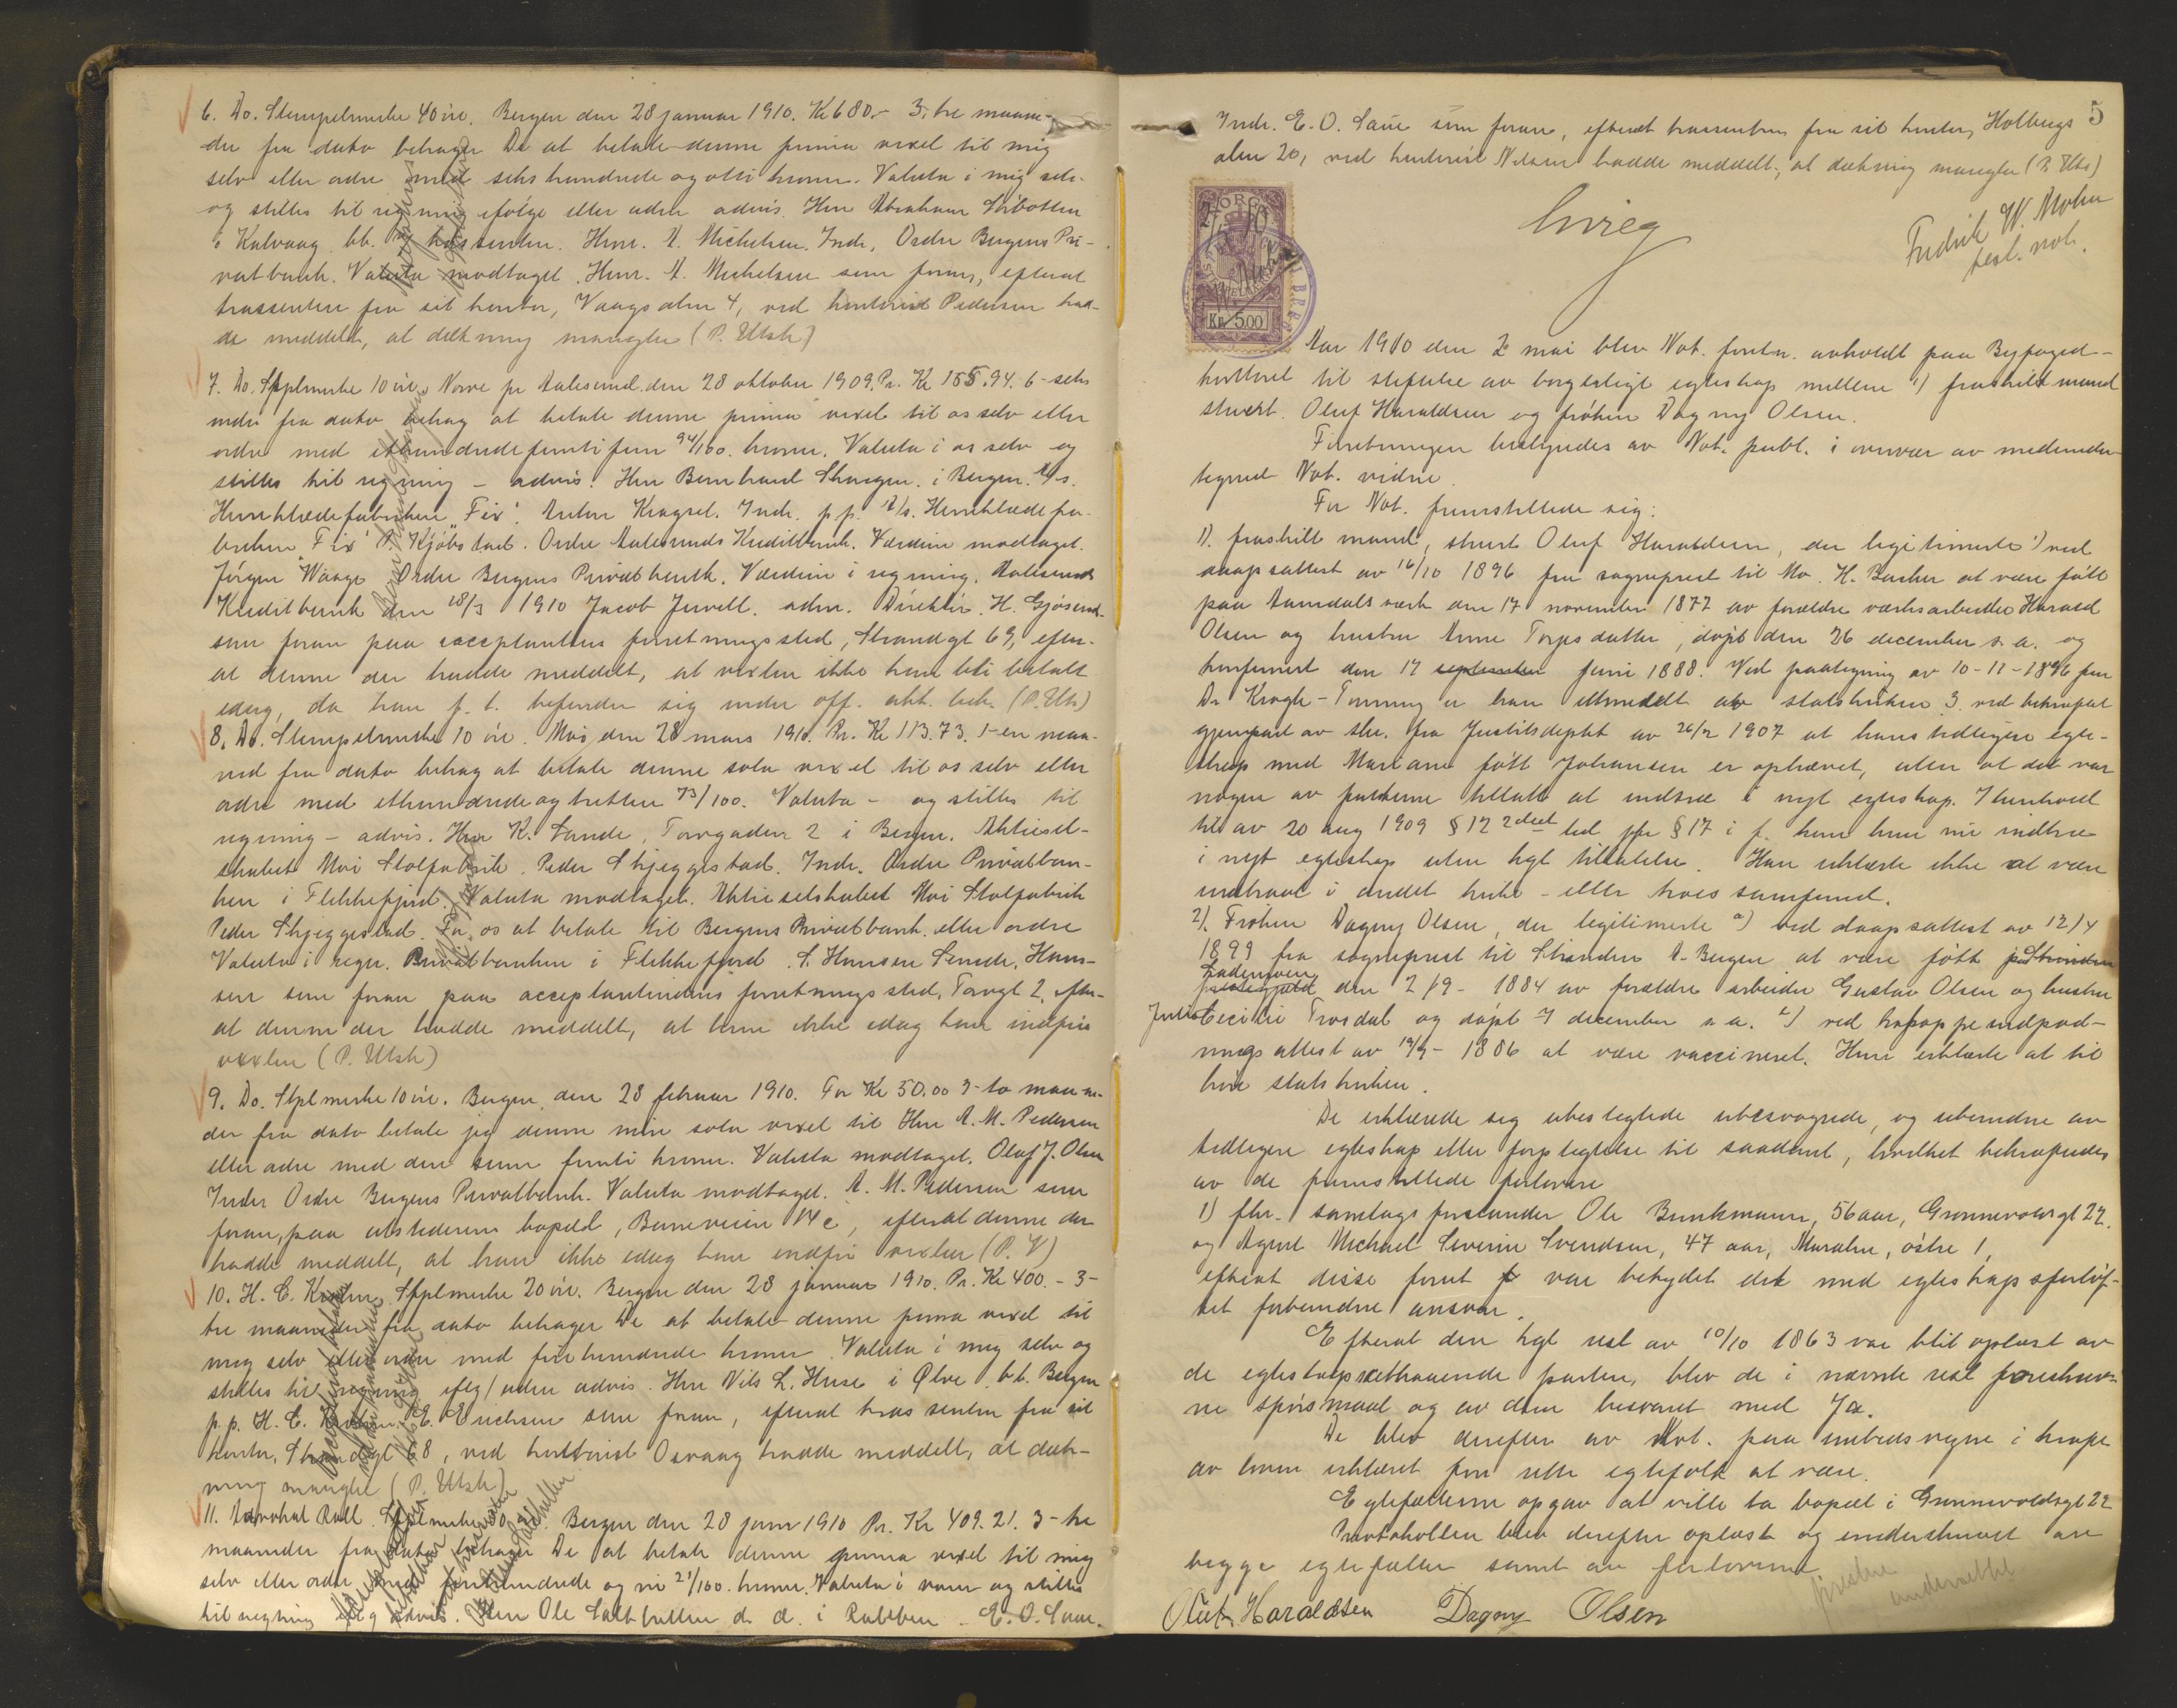 6. Do. Stempelmerke 40 øre. Bergen den 28 januar 1910. Kr 680.- 3, tre maane-
der fra dato behager De at betale denne prima vexel til mig
selv eller ordre med seks hundrede og otti kroner. Valuta i mig selv
og stilles til regning ifølge eller uden advis. Herr Abraham
i Kalvaag bb. trassenten. Henr. A. Michelsen. Indr. Ordre Bergens Pri-
vatbank. Valuta modtaget. Henr. A. Michelsen som foran, efterat
trassenten fra sit kontor, Vaagsalm 4, ved kontorist Pedersen had-
de meddelt, at dækning mangler (P. Utsk)
7. Do. Stplmerke 10 øre. Norve pr Aalesund den 28 oktober 1909. Pr. Kr 155.94. 6 - seks
mdr fra dato behag at betale denne prima vexel til os selv eller
ordre med ethundredefemtifem 94/100. kroner. Valuta i os selv og
stilles til regning - advis. Herr Bernhard i Bergen. A/s.
Herreklædefabriken "Fix". Anton Kragset. Indr. p.p. A/s. Herreklædefa-
briken "Fix" P. Kjøbstad. Ordre Aalesunds Kreditbank. Værdien modtaget.
Jørgen Waage Ordre Bergens Privatbank. Værdien i regning. Aalesunds
Kreditbank den 18/3 1910 Jacob Jervell. adm. Direktør. H. Gjøsund
som foran paa acceptantens forretningssted, Strandgt 69, efter-
at denne der hadde meddelt, at vexlen ikke kan bli betalt
idag, da han f. t. befinder sig under off. akk. beh. (P. Uts)
8. Do. Stempelmerke 10 øre. Moi den 28 mars 1910. Pr. Kr 113.73. 1 - en maa-
ned fra dato behag at betale denne sola vexel til os selv eller
ordre med ethundredeogtretten 73/100. Valuta - og stilles til
regning - advis. Herr K. Lande, Torvgaden 2 i Bergen. Aktiesel-
skabet Moi Stolfabrik. Peder Skjeggestad. Indr. Ordre Privatban-
ken i Flekkefjord. Valuta modtaget. Aktieselskabet Moi Stolfabrik
Peder Skjeggestad. For os at betale til Bergens Privatbank eller ordre
Valuta i regn. Privatbanken i Flekkefjord. S. Hansen Hans-
sen som foran paa acceptantindens forretningssted, Torvgt 2, efter-
at denne der hadde meddelt, at hun ikke idag kan indfri
vexlen (P. Utsk)
9. Do. Stplmerke 10 øre. Bergen den 28 februar 1910. For Kr 50.00 3 - to maane-
der fra dato betale jeg denne min sola vexel til Herr A. M. Pedersen
eller ordre med den sum femti kroner. Valuta modtaget. Olaf J. Olsen
Indr Ordre Bergens Privatbank. Valuta modtaget. A. M. Pedersen som
foran, paa utstederens bopæl, 14 c, efterat denne der
hadde meddelt, at han ikke idag kan indfri vexlen (P. V)
10. H. C. Stplmerke 20 øre. Bergen den 28 januar 1910. Pr. Kr 400. - 3 -
tre maaneder fra dato behager De at betale denne prima vexel til
mig selv eller ordre med fire hundrede kroner. Valuta i mig selv og
stilles til regning iflg / uden advis. Herr Nils L. Huse i Ølve b.b. Bergen
p.p. H. C. E. Erichsen som foran, efterat trassenten fra sit
kontor, Strandgt 68, ved kontorist Osvaag hadde meddelt, at dæk-
ning mangler (P. Utsk)
11. Advokat Roll. Stplmerke Bergen den 28 janr 1910 Pr. Kr 409.21. 3 - tre
maaneder fra dato behager De at betale denne prima vexel til mig
selv eller ordre med firehundrede og ni 21/100. kroner. Valuta i varer og stilles
til regning iflg advis. Herr Ole d. æ. i Rubben. E. O. Saue.
5
Indr. E. O. Saue som foran, efterat trassenten fra sit kontor, Holbergs
alm 20, ved kontorist Nilsen hadde meddelt, at dækning mangler (P. Uts)
Fredrik W. Mohn
NORGE
Kr. 5.00
Aar 1910 den 2 mai blev Not. forretn. avholdt paa Byfoged-
kontoret til stiftelse av borgerligt egteskap mellem 1) fraskilt mand
skuesp. Oluf Haraldsen og frøken Dagny Olsen.
Forretningen beklyndtes av Not. publ. i overvær av medunder-
tegnet Not. vidne.
For Not. fremstillede sig:
1). fraskilt mand, Oluf Haraldsen, der legitimerte 1) ved
daapsattest av 16/10 1896 fra sogneprest til Mo H. at være født
paa Aamdals værk den 17 november 1877 av forældre værksarbeider Harald
Olsen og hustru Anne Torjusdatter, døpt den 26 december s. a. og
konfirmert den 17 september juni 1888. Ved paategning av 10-11-1896 fra
Dr Krogh-Tonning er han utmeldt av statskirken 3. ved bekræftet
gjenpart av skr. fra Justitsdeptet av 26/2 1907 at hans tidligere egte-
skap med Mariane født Johansen er ophævet, uten at det var
nogen av parterne tillatt at indtræ i nyt egteskap. I henhold
til av 20 aug 1909 § 12 2det led jfr § 17 i f. kan han nu indtræ
i nyt egteskap uten kgl tillatelse. Han erklærte ikke at være
indtraat i andet kirke- eller troessamfund.
2). Frøken Dagny Olsen, der legitimerte a) ved daapsattest av 12/4
1899 fra sogneprest til Strinden A. Bergen at være født paa Strinden
Lademoen
prestegjeld den 2/9 - 1884 av forældre arbeider Gustav Olsen og hustru
Cecilie Trosdal og døpt 7 december s. a. 2) ved kopperindpod-
ningsattest av 19/9 - 1886 at være vaccineret. Hun erklærte at til
høre statskirken.
De erklærede sig ubeslegtede ubesvogrede, og ubundne av
tidligere egteskap eller forpligtelse til saadant, hvilket bekræftedes
av de fremstillede forlovere
1) fhv. samlagsforstander Ole Bunkmann, 56 aar, Grønnevoldsgt 22,
og Agent Michael Severin Svendsen, 47 aar, Muralm, østre 1,
efterat disse forut var betydet det med egteskapsforløf-
tet forbundne ansvar.
Efterat den kgl resl av 10/10 1863 var blit oplæst av
de egteskapsattraaende parter, blev de i nævnte resl foreskrev-
ne spørsmaal og av dem besvaret med Ja.
De blev derefter av Not. paa embedsvegne i kraft
av loven erklæret for rette egtefolk at være.
Egtefællerne opgav at ville ta bopæl i Grønnevoldsgt 22
Protokollen blev derefter oplæst og underskrevet av
begge egtefæller samt av forloverne
Oluf Haraldsen Dagny Olsen